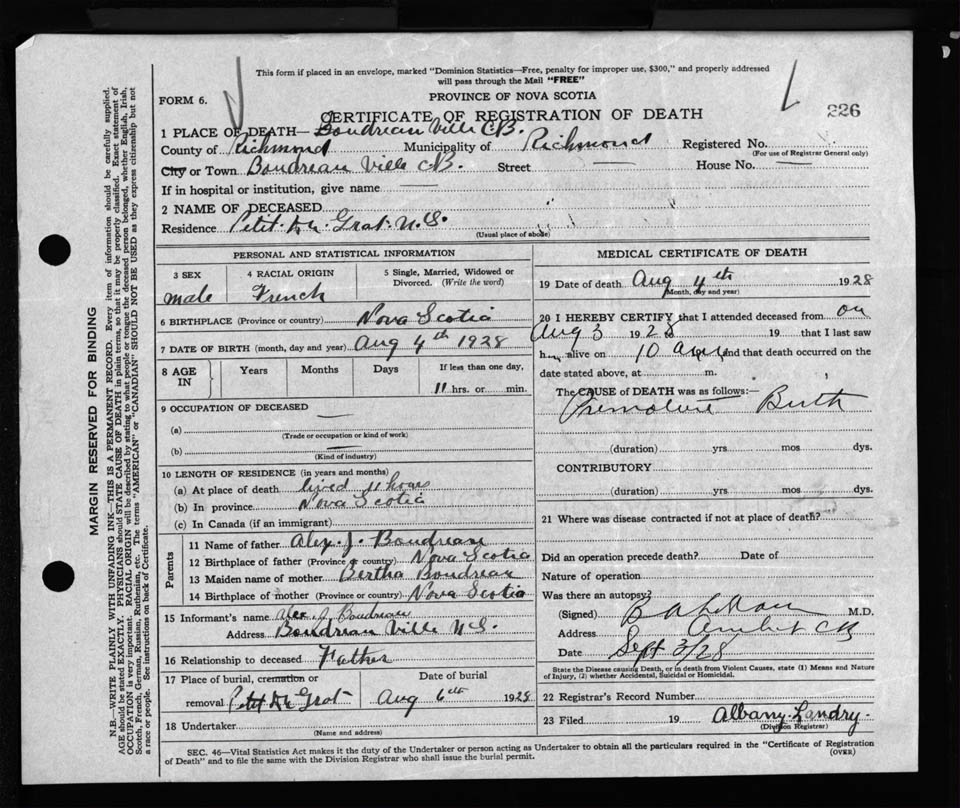 This form if placed in an envelope, marked "Dominion Statistics—Free, penalty for improper use, $300," and properly addressed
will pass through the Mail "FREE"
FORM 6.
PROVINCE OF NOVA SCOTIA
226
CERTIFICATE OF REGISTRATION OF DEATH
1 PLACE OF DEATH— Boudreau Ville C.B.
County of Richmond Municipality of Richmond Registered No.
(For use of Registrar General only)
City or Town Boudreau Ville C.B. Street — House No. —
If in hospital or institution, give name —
2 NAME OF DECEASED
Residence Petit. De. Grat N.S.
(Usual place of abode)
PERSONAL AND STATISTICAL INFORMATION
3 SEX 4 RACIAL ORIGIN 5 Single, Married, Widowed or
Divorced. (Write the word)
male French
6 BIRTHPLACE (Province or country) Nova Scotia
7 DATE OF BIRTH (month, day and year) Aug 4th 1928
8 AGE IN Years Months Days If less than one day,
11 hrs. or min.
9 OCCUPATION OF DECEASED —
(a)
(Trade or occupation or kind of work)
(b) —
(Kind of industry)
10 LENGTH OF RESIDENCE (in years and months)
(a) At place of death lived 11 hours
(b) In province Nova Scotia
(c) In Canada (if an immigrant)
Parents
11 Name of father Alex. J. Boudreau
12 Birthplace of father (Province or country) Nova Scotia
13 Maiden name of mother Bertha Boudreau
14 Birthplace of mother (Province or country) Nova Scotia
15 Informant's name Alex J Boudreau
Address Boudreau Ville N.S.
16 Relationship to deceased Father
17 Place of burial, cremation or Date of burial
removal Petit De Grat Aug 6th 1928
18 Undertaker
(Name and address)
MEDICAL CERTIFICATE OF DEATH
19 Date of death Aug 4th 1928
(Month, day and year)
20 I HEREBY CERTIFY that I attended deceased from on
Aug 3 1928 19 that I last saw
h alive on 10 and that death occurred on the
date stated above, at m.
The CAUSE OF DEATH was as follows:
Premature Birth
(duration) yrs mos dys.
CONTRIBUTORY
(duration) yrs mos dys.
21 Where was disease contracted if not at place of death?
Did an operation precede death? Date of
Nature of operation
Was there an autopsy?
(Signed) M.D.
Address Arichat CB
Date Sept 3/28
State the Disease causing Death, or in death from Violent Causes, state (1) Means and Nature
of Injury, (2) whether Accidental, Suicidal or Homicidal.
22 Registrar's Record Number
23 Filed 19 Albany Landry.
(Division Registrar)
SEC. 46—Vital Statistics Act makes it the duty of the Undertaker or person acting as Undertaker to obtain all the particulars required in the "Certificate of Registration
of Death" and to file the same with the Division Registrar who shall issue the burial permit. (OVER)
MARGIN RESERVED FOR BINDING
N.B.—WRITE PLAINLY WITH UNFADING INK—THIS IS A PERMANENT RECORD. Every item of information should be carefully supplied.
AGE should be stated EXACTLY. PHYSICIANS should STATE CAUSE OF DEATH in plain terms, so that it may be properly classified. Exact statement of
OCCUPATION is very important. RACIAL ORIGIN will be described by stating to what people or tongue the deceased person belonged, whether English, Irish,
Scotch, French, German, Russian, Ruthenian, etc. The terms "AMERICAN" or "CANADIAN" SHOULD NOT BE USED as they express citizenship but not
a race or people. See instructions on back of Certificate.